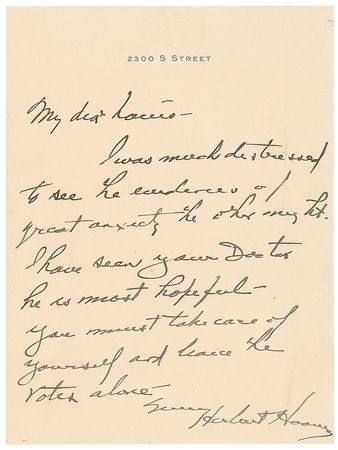 2300 S STREET
My dear Louis -
I was much distressed
to see the evidences of
great anxiety the other night.
I have seen your Doctor
he is most hopeful -
you must take care of
yourself and leave the
votes alone -
Herbert Hoover